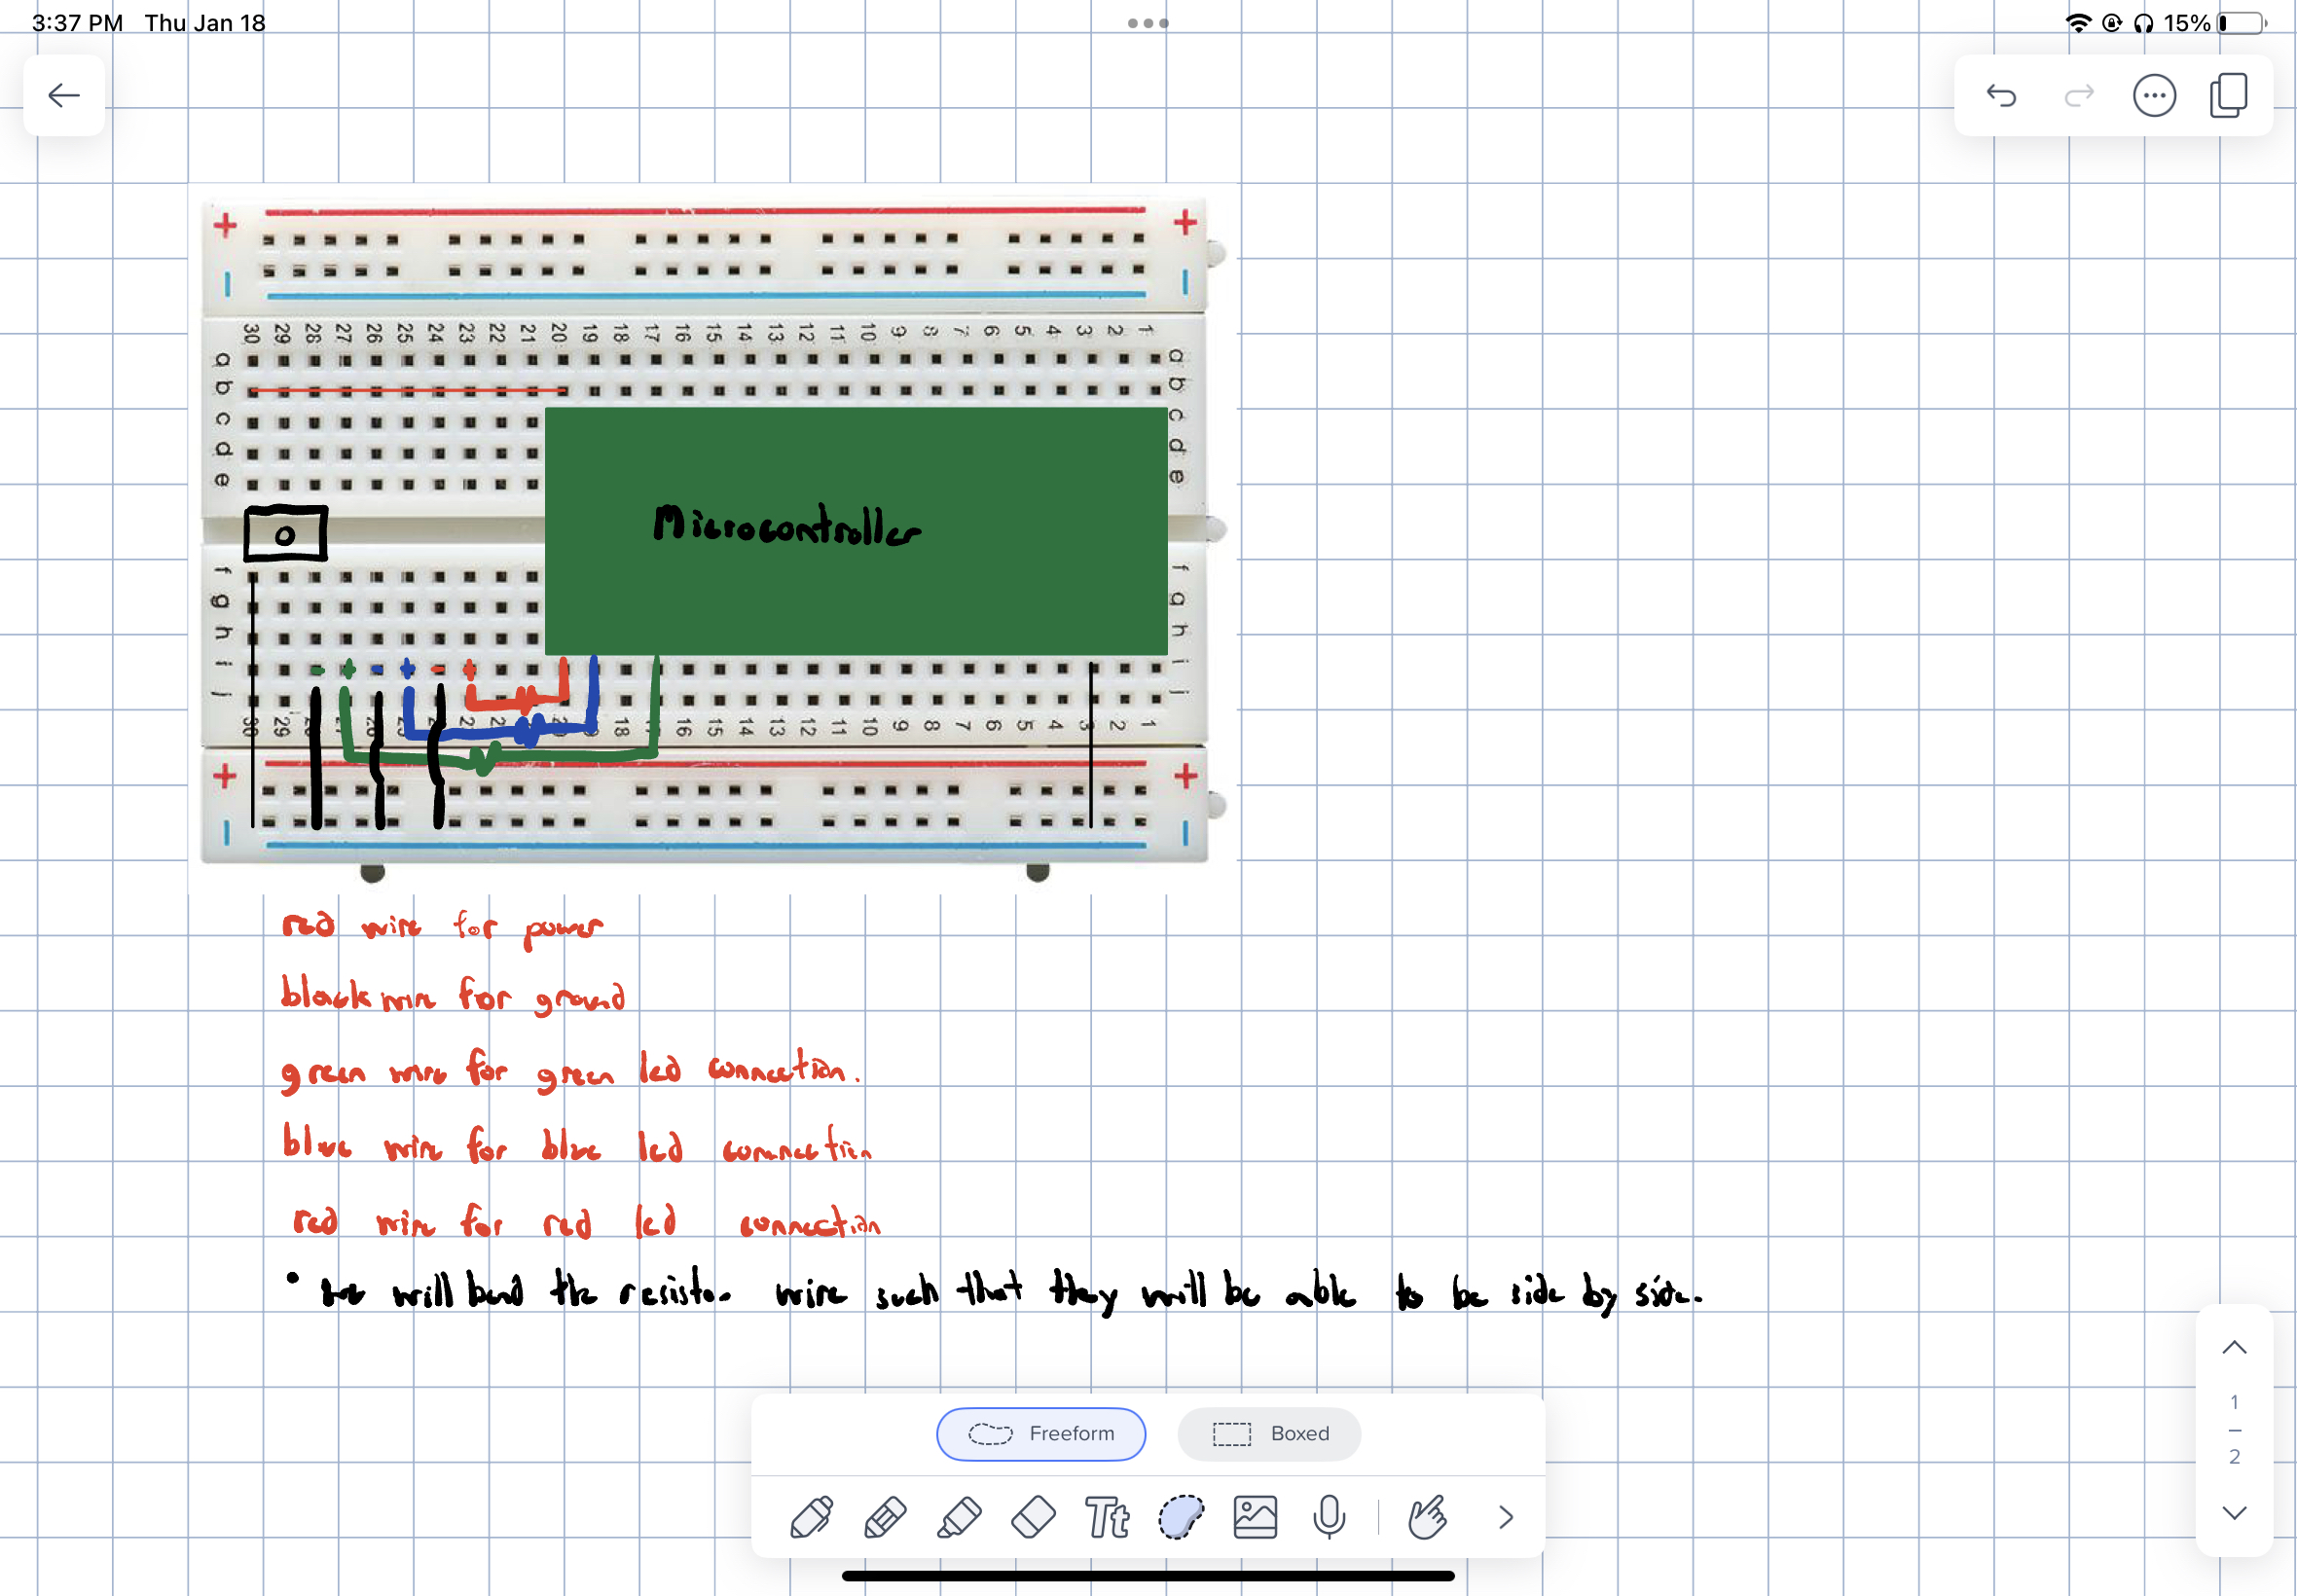 3:37 PM Thu Jan 18
15%
+ +
30 29 28 27 26 25 24 23 22 21 20 19 18 17 16 15 14 13 12 11 10 9 8 7 6 5 4 3 2 1
a a
b b
c c
d d
e e
Microcontroller
o
f f
g g
h h
i - + - + - + i
j j
30 29 18 16 15 14 13 12 11 10 9 8 7 6 5 4 3 2 1
+ +
red wire for power
black wire for ground
green wire for green led connection.
blue wire for blue led connection
red wire for red led connection
• we will bend the resistor wire such that they will be able to be side by side.
Freeform Boxed
1
2
Tt